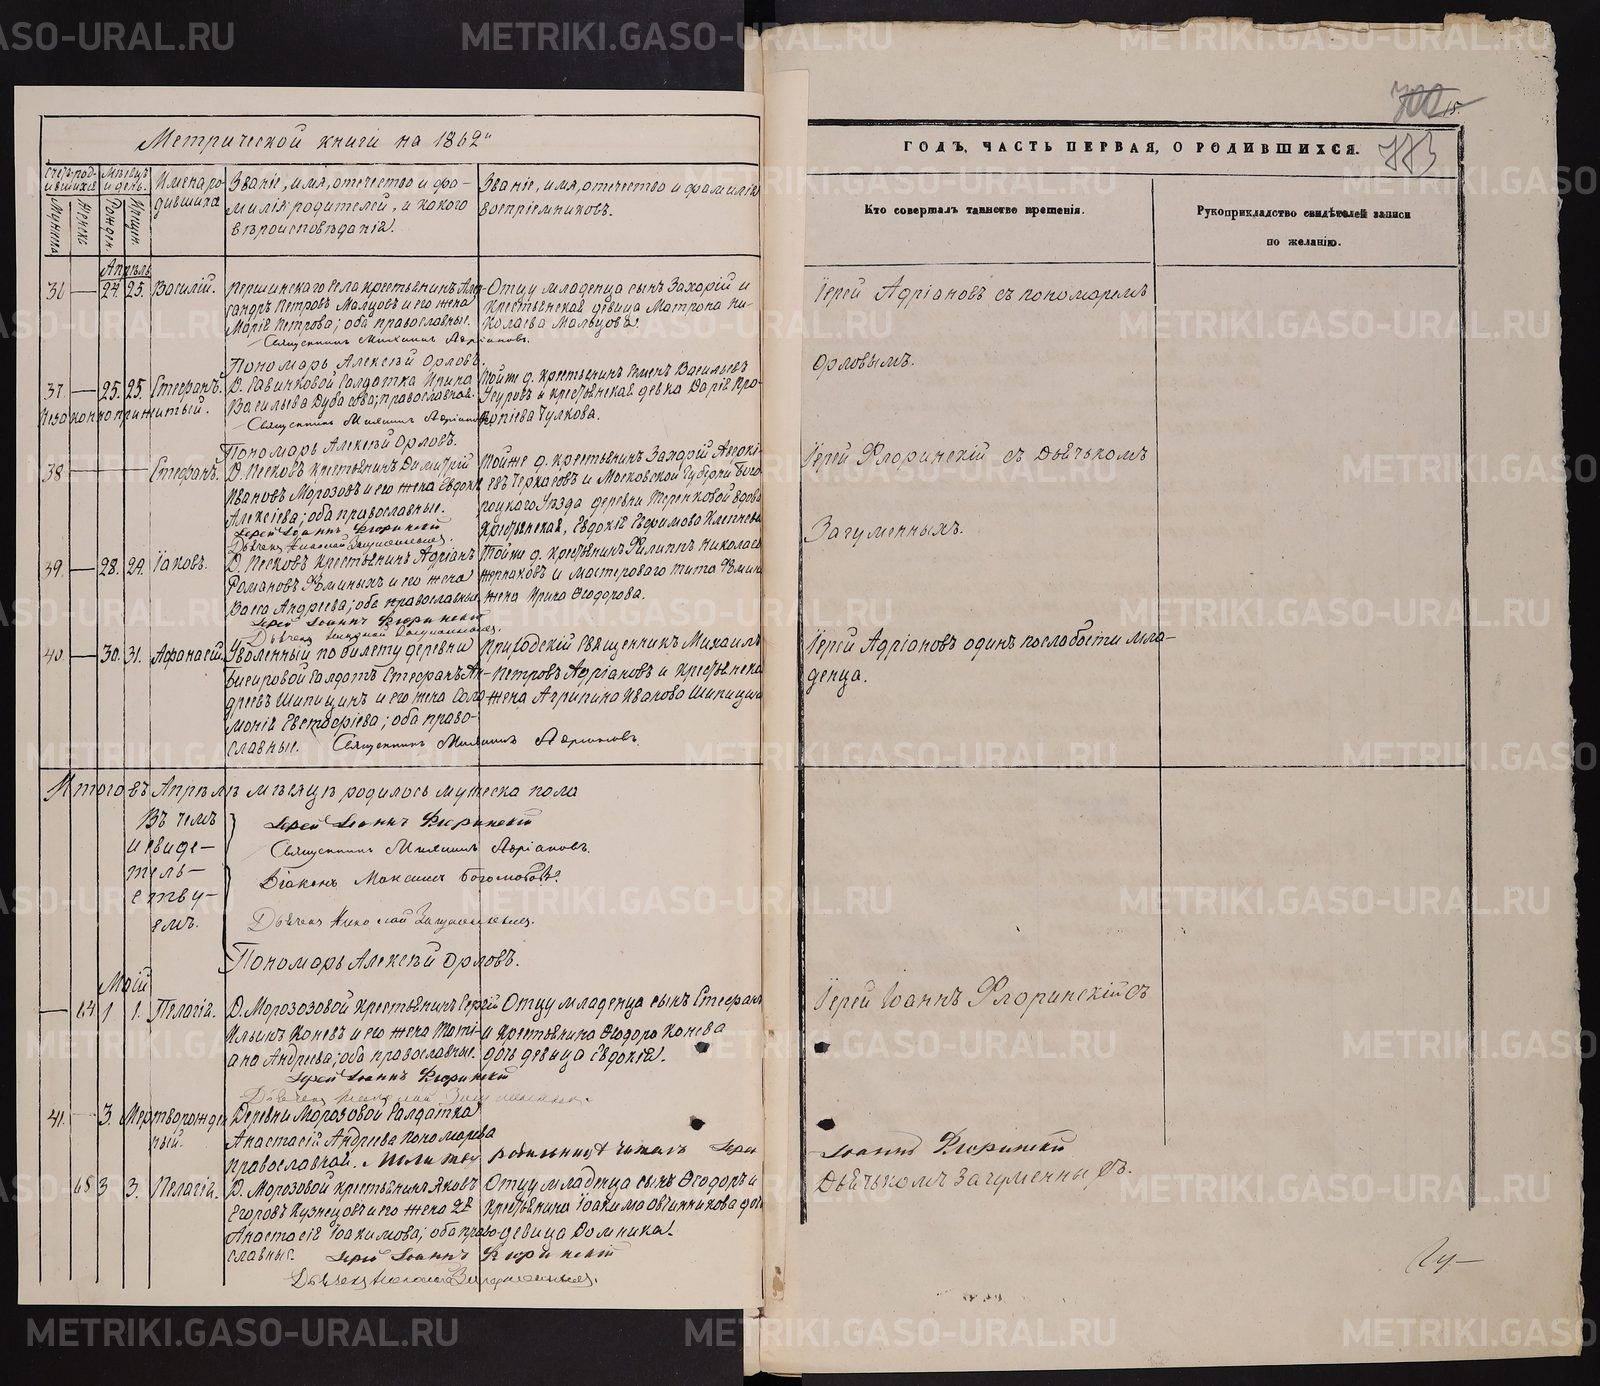 Метрической книги на 1862"
Счетъ родившихся
Мужеска
Женска
Мѣсяцъ и день.
Рожден.
Крещен.
Имена родившихся
Званіе, имя, отечество и фамилія родителей, и какого вѣроисповѣданія.
Званіе, имя, отечество и фамилія воспріемниковъ.
ГОДЪ, ЧАСТЬ ПЕРВАЯ, О РОДИВШИХСЯ.
773
Кто совершалъ таинство крещенія.
Рукоприкладство свидѣтелей записи
по желанію.
Апрѣль
36 — 24. 25. Василій.
Першинскаго села крестьянинъ Алек-
сандръ Петровъ Мальцовъ и его жена
Марія Петрова; оба православные.
Священникъ Михаилъ Адріановъ.
Пономарь Алексѣй Орловъ.
Отцу младенца сынъ Захарій и
крестьянская девица Матрона Ни-
колаева Мальцова.
Іерей Адріановъ съ пономаремъ
Орловымъ.
37. — 25. 25. Стефанъ.
Незаконноприжитый.
Д. Савинковой солдатка Ирина
Васильева; православная.
Священникъ Михаилъ Адріановъ
Пономарь Алексѣй Орловъ.
Тойже д. крестьянинъ Семенъ Васильевъ
и крестьянская девка Дарія Про-
копіева Чулкова.
38 — — — Стефанъ.
Д. Песковъ крестьянинъ Димитрій
Ивановъ Морозовъ и его жена Евдокія
Алексіева; оба православные.
Іерей Іоаннъ Флоринскій
Дьячекъ Николай Загуменныхъ.
Тойже д. крестьянинъ Захарій
Черкасовъ и Московской губерніи Бого-
родскаго уѣзда деревни
крестьянская, Евдокія Ефимова
Іерей Флоринскій съ дьячькомъ
Загуменныхъ.
39. — 28. 29. Іаковъ.
Д. Песковъ крестьянинъ Адріанъ
Романовъ Ѳоминыхъ и его жена
Васса Андреева; оба православные
Іерей Іоаннъ Флоринскій
Дьячекъ Николай Загуменныхъ.
Тойже д. крестьянинъ Филиппъ Николаевъ
и мастероваго Тита
жена Ирина Ѳеодорова.
40. — 30. 31. Афанасій.
Уволенный по билету деревни
солдатъ Стефанъ Ан-
дреевъ Шипицинъ и его жена Соло-
монія Евстафіева; оба право-
славные. Священникъ Михаилъ Адріановъ.
Приходскій священникъ Михаилъ
Петровъ Адріановъ и крестьянская
жена Агрипина Иванова Шипицина
Іерей Адріановъ одинъ послабости мла-
денца.
Итого въ Апрѣлѣ мѣсяцѣ родилось мужеска пола
Въ чемъ
и свиде-
тель-
ству-
емъ.
Іерей Іоаннъ Флоринскій
Священникъ Михаилъ Адріановъ.
Діаконъ Максимъ Богомоловъ.
Дьячекъ Николай Загуменныхъ.
Пономарь Алексѣй Орловъ.
Май
— 64 1 1. Пелагія.
Д. Морозовой крестьянинъ Сергій
Ильинъ Коневъ и его жена Тати-
ана Андреева; оба православные.
Іерей Іоаннъ Флоринскій
Дьячекъ Николай Загуменныхъ.
Отцу младенца сынъ Стефанъ
и крестьянина Ѳеодора Конева
дочь девица Евдокія.
Іерей Іоаннъ Флоринскій съ
41. — 3. Мертворожден-
ный.
Деревни Морозовой солдатка
Анастасія Андреева Пономарева
православная. Молитву родильницѣ читалъ Іерей
Іоаннъ Флоринскій
65 3 3. Пелагія.
Д. Морозовой крестьянинъ Яковъ
Егоровъ Кузнецовъ и его жена
Анастасія Іоакимова; оба право-
славные. Іерей Іоаннъ Флоринскій
Дьячекъ Николай Загуменныхъ.
Отцу младенца сынъ Ѳеодоръ и
крестьянина Іоакима Овчинникова дочь
девица Домника.
Дьячькомъ Загуменныхъ.
METRIKI.GASO-URAL.RU